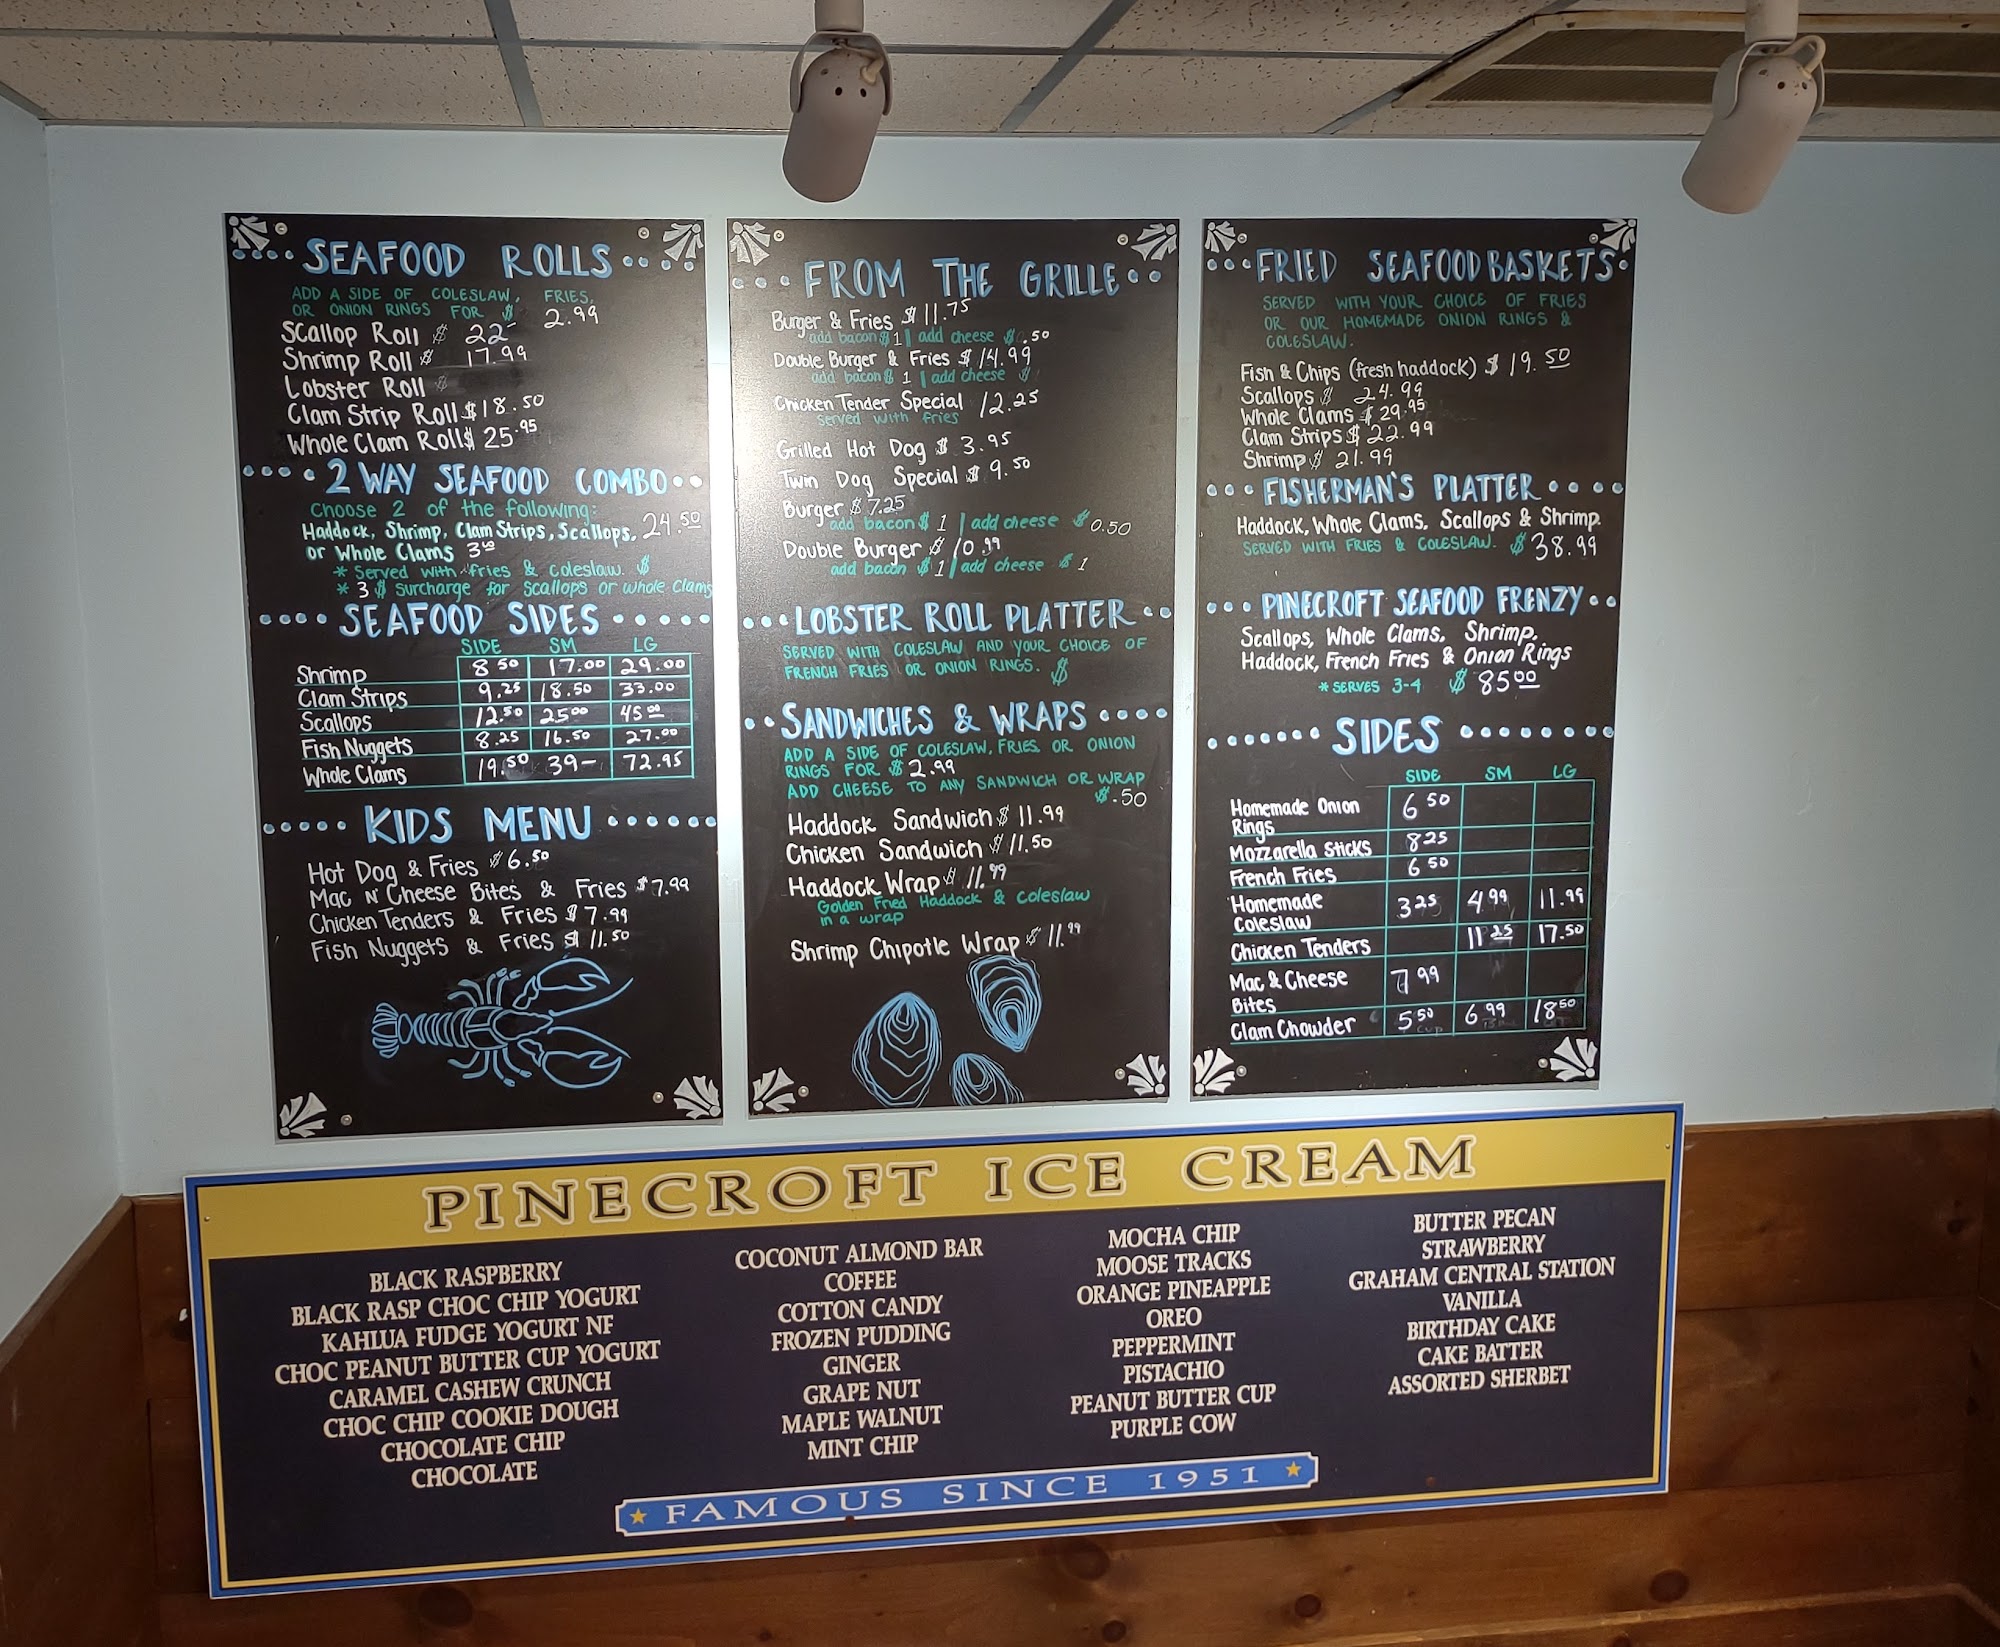 SEAFOOD ROLLS
ADD A SIDE OF COLESLAW, FRIES,
OR ONION RINGS FOR $ 2.99
Scallop Roll $ 22-
Shrimp Roll $ 17.99
Lobster Roll $
Clam Strip Roll $18.50
Whole Clam Roll $ 25.95
2 WAY SEAFOOD COMBO
Choose 2 of the following:
Haddock, Shrimp, Clam Strips, Scallops, 24.50
or Whole Clams 3⁰⁰
* Served with fries & coleslaw. $
* 3 $ surcharge for Scallops or whole Clams
SEAFOOD SIDES
SIDE SM LG
Shrimp 8.50 17.00 29.00
Clam Strips 9.25 18.50 33.00
Scallops 12.50 25.00 45.00
Fish Nuggets 8.25 16.50 27.00
Whole Clams 19.50 39- 72.95
KIDS MENU
Hot Dog & Fries $6.50
Mac N' Cheese Bites & Fries $7.99
Chicken Tenders & Fries $7.99
Fish Nuggets & Fries $11.50
FROM THE GRILLE
Burger & Fries $11.75
add bacon $1 | add cheese $.50
Double Burger & Fries $14.99
add bacon $ 1 | add cheese $
Chicken Tender Special 12.25
served with fries
Grilled Hot Dog $ 3.95
Twin Dog Special $ 9.50
Burger $7.25
add bacon $ 1 | add cheese $0.50
Double Burger $10.99
add bacon $1 | add cheese $1
LOBSTER ROLL PLATTER
SERVED WITH COLESLAW AND YOUR CHOICE OF
FRENCH FRIES OR ONION RINGS. $
SANDWICHES & WRAPS
ADD A SIDE OF COLESLAW, FRIES OR ONION
RINGS FOR $2.99
ADD CHEESE TO ANY SANDWICH OR WRAP
$.50
Haddock Sandwich $11.99
Chicken Sandwich $11.50
Haddock Wrap $ 11.99
Golden Fried Haddock & Coleslaw
in a wrap
Shrimp Chipotle Wrap $11.99
FRIED SEAFOOD BASKETS
SERVED WITH YOUR CHOICE OF FRIES
OR OUR HOMEMADE ONION RINGS &
COLESLAW.
Fish & Chips (fresh haddock) $19.50
Scallops $ 24.99
Whole Clams $29.95
Clam Strips $22.99
Shrimp $ 21.99
FISHERMAN'S PLATTER
Haddock, Whole Clams, Scallops & Shrimp.
SERVED WITH FRIES & COLESLAW. $38.99
PINECROFT SEAFOOD FRENZY
Scallops, Whole Clams, Shrimp,
Haddock, French Fries & Onion Rings
* SERVES 3-4 $ 85.00
SIDES
SIDE SM LG
Homemade Onion
Rings 6.50
Mozzarella Sticks 8.25
French Fries 6.50
Homemade
Coleslaw 3.25 4.99 11.99
Chicken Tenders 11.25 17.50
Mac & Cheese
Bites 7.99
Clam Chowder 5.50 6.99 18.50
PINECROFT ICE CREAM
BLACK RASPBERRY
BLACK RASP CHOC CHIP YOGURT
KAHLUA FUDGE YOGURT NF
CHOC PEANUT BUTTER CUP YOGURT
CARAMEL CASHEW CRUNCH
CHOC CHIP COOKIE DOUGH
CHOCOLATE CHIP
CHOCOLATE
COCONUT ALMOND BAR
COFFEE
COTTON CANDY
FROZEN PUDDING
GINGER
GRAPE NUT
MAPLE WALNUT
MINT CHIP
MOCHA CHIP
MOOSE TRACKS
ORANGE PINEAPPLE
OREO
PEPPERMINT
PISTACHIO
PEANUT BUTTER CUP
PURPLE COW
BUTTER PECAN
STRAWBERRY
GRAHAM CENTRAL STATION
VANILLA
BIRTHDAY CAKE
CAKE BATTER
ASSORTED SHERBET
FAMOUS SINCE 1951